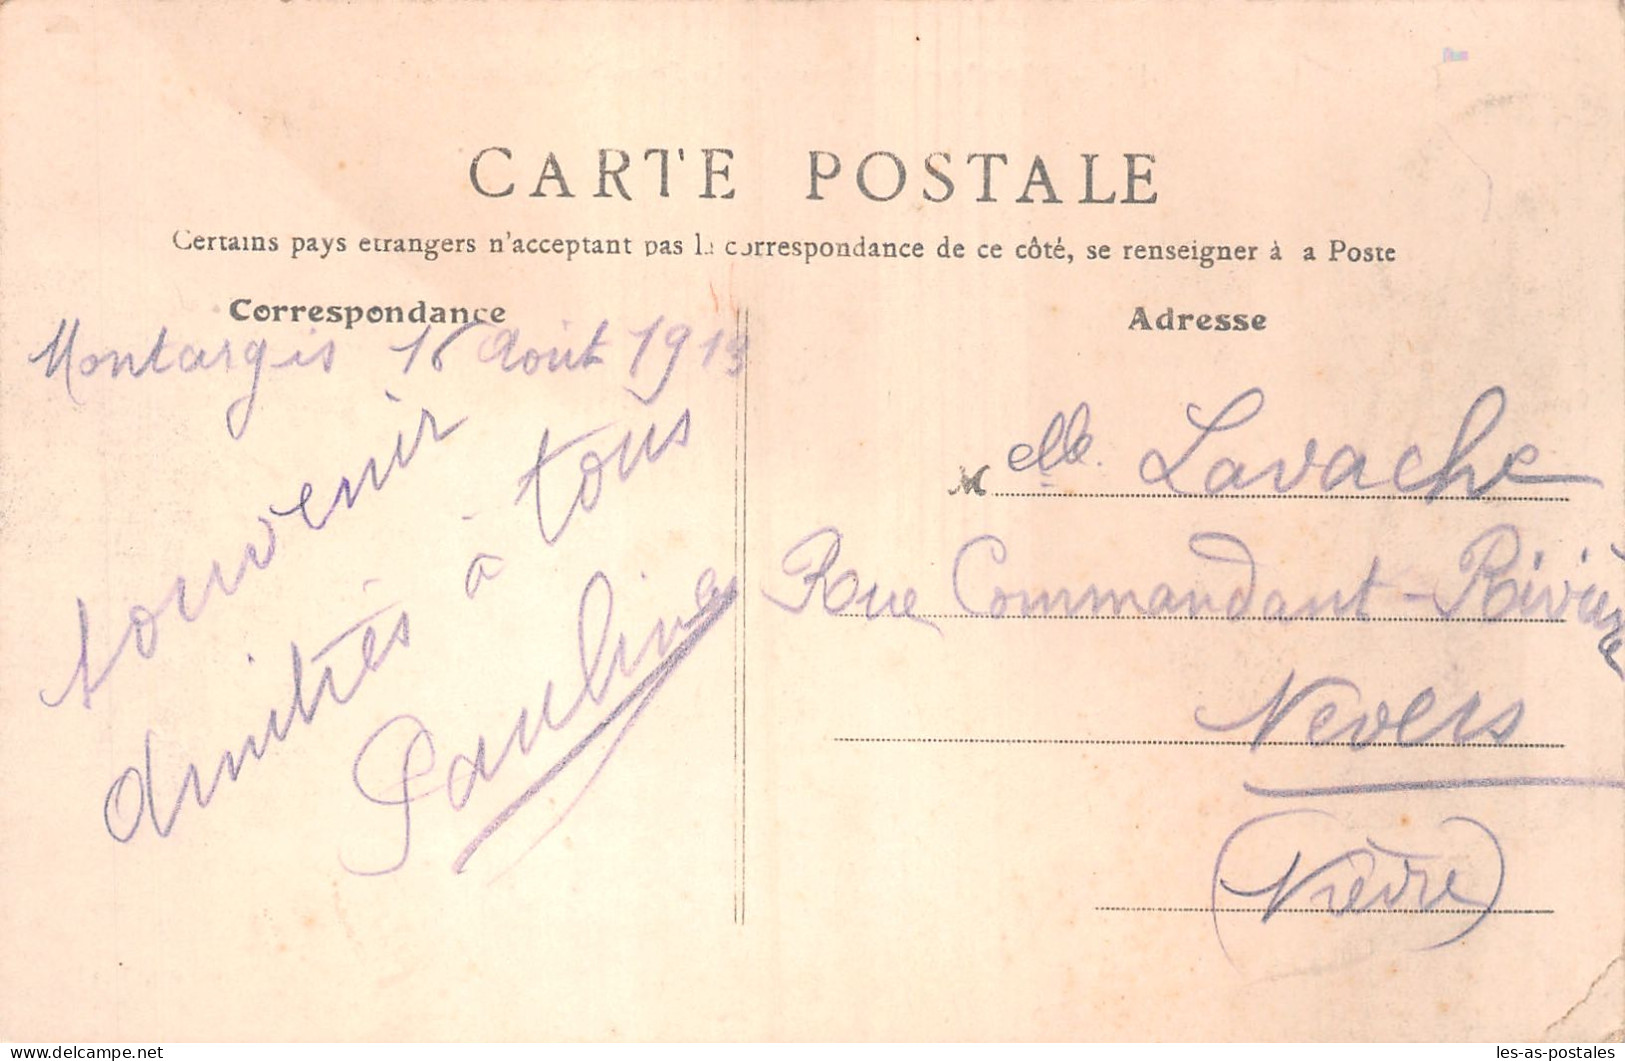 CARTE POSTALE
Certains pays etrangers n'acceptant pas la correspondance de ce côté, se renseigner à a Poste
Correspondance
Montargis 16 Août 1913
Souvenir
Amitiés à tous
Pauline
Adresse
Melle. Lavache
Rue Commandant-Rivière
Nevers
(Nièvre)
les-as-postales